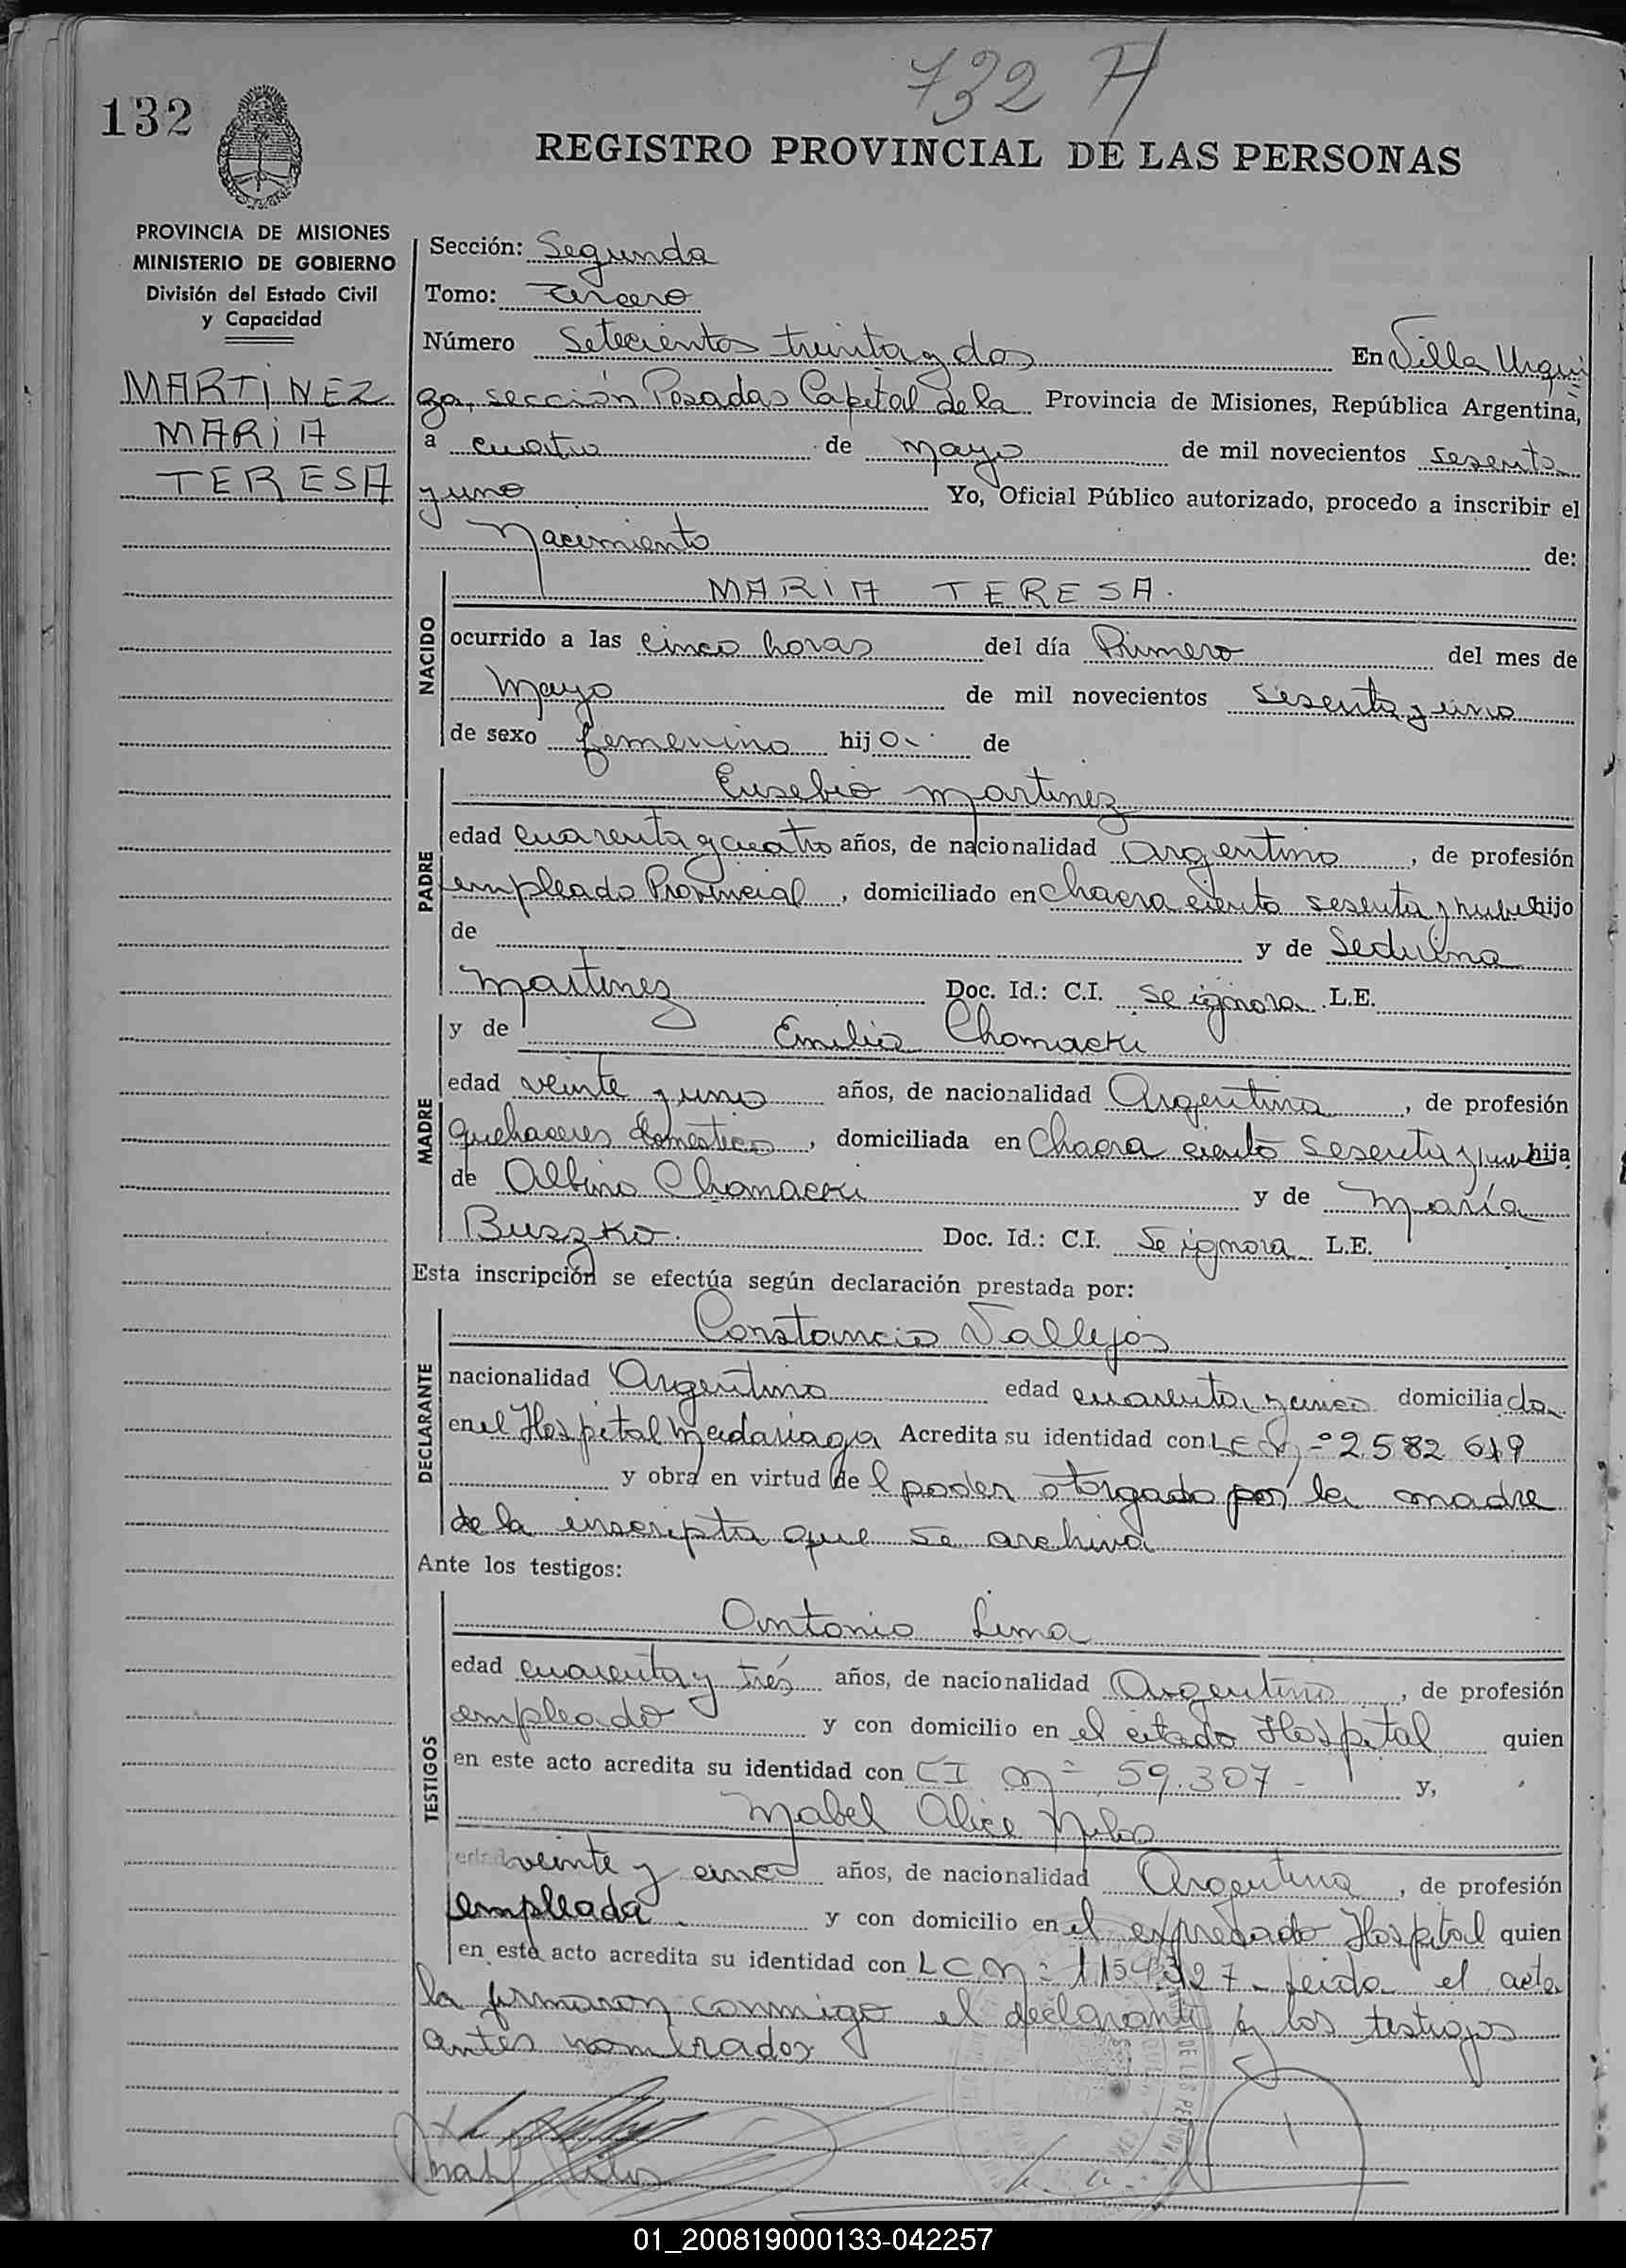 732 A
132
REGISTRO PROVINCIAL DE LAS PERSONAS
PROVINCIA DE MISIONES
MINISTERIO DE GOBIERNO
División del Estado Civil
y Capacidad
MARTINEZ
MARIA
TERESA
Sección: Segunda
Tomo: Tercero
Número Setecientos treinta y dos En Villa Urqui
za, sección Posadas Capital de la Provincia de Misiones, República Argentina,
a cuatro de mayo de mil novecientos sesenta
y uno Yo, Oficial Público autorizado, procedo a inscribir el
Nacimiento de:
NACIDO
MARIA TERESA.
ocurrido a las cinco horas del día Primero del mes de
Mayo de mil novecientos sesenta y uno
de sexo femenino hija de
PADRE
Eusebio Martinez
edad cuarenta y cuatro años, de nacionalidad Argentino, de profesión
empleado Provincial, domiciliado en Chacra ciento sesenta y nueve hijo
de y de Sedulina
Martinez Doc. Id.: C.I. se ignora L.E.
MADRE
y de Emilia Chomacki
edad veinte y uno años, de nacionalidad Argentina, de profesión
quehaceres domestico, domiciliada en Chacra ciento sesenta y nueve hija
de Albino Chomacki y de María
Buszko. Doc. Id.: C.I. Se ignora L.E.
Esta inscripción se efectúa según declaración prestada por:
DECLARANTE
Constancio Vallejos
nacionalidad Argentino edad cuarenta y cinco domiciliado
en el Hospital Madariaga Acredita su identidad con L E Nº 2.582 619
y obra en virtud del poder otorgado por la madre
de la inscripta que se archiva
Ante los testigos:
TESTIGOS
Antonio Lima
edad cuarenta y trés años, de nacionalidad Argentino, de profesión
empleado y con domicilio en el citado Hospital quien
en este acto acredita su identidad con CI Nº 59.307 - y,
Mabel Alice
edad veinte y cinco años, de nacionalidad Argentina, de profesión
empleada y con domicilio en el expresado Hospital quien
en este acto acredita su identidad con L C Nº 1.154.327 - Leida el acta
la firmaron conmigo el declarante y los testigos
antes nombrados
01_200819000133-042257